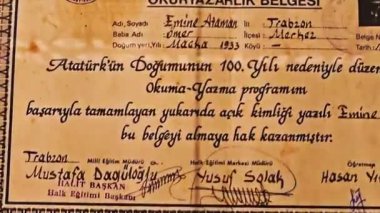 OKURYAZARLIK BELGESİ
Adı, Soyadı Emine Ataman İli Trabzon
Baba Adı Ömer İlçesi Merkez
Doğum yeri, Yılı Maçka 1933 Köyü —
Atatürk'ün Doğumunun 100. Yılı nedeniyle düzen
Okuma-Yazma programını
başarıyla tamamlayan yukarıda açık kimliği yazılı Emine
bu belgeyi almaya hak kazanmıştır.
Trabzon Millî Eğitim Müdürü Halk Eğitimi Merkezi Müdürü Öğretmen
Mustafa Dagüloğlu Yusuf Solak Hasan
HALİT BAŞKAN
Halk Eğitimi Başkanı